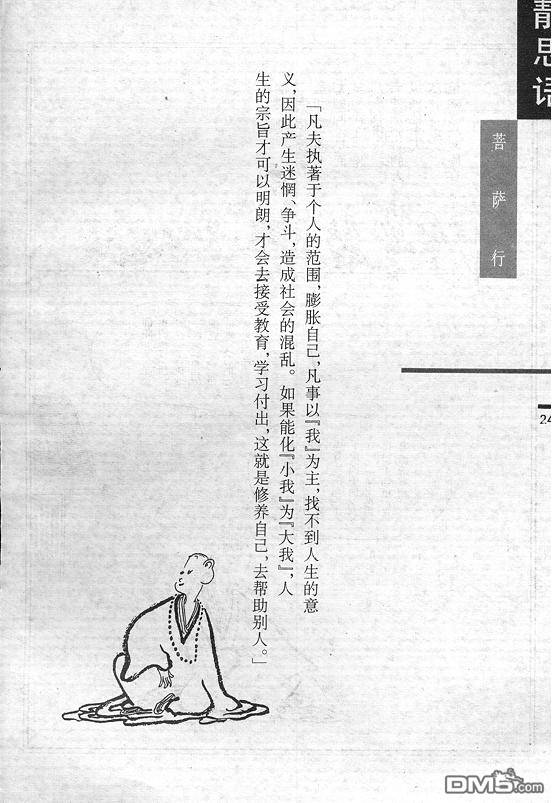 静思语
菩萨行
「凡夫执著于个人的范围，膨胀自己，凡事以『我』为主，找不到人生的意
义，因此产生迷惘、争斗，造成社会的混乱。如果能化『小我』为『大我』，人
生的宗旨才可以明朗，才会去接受教育，学习付出，这就是修养自己，去帮助别人。」
24